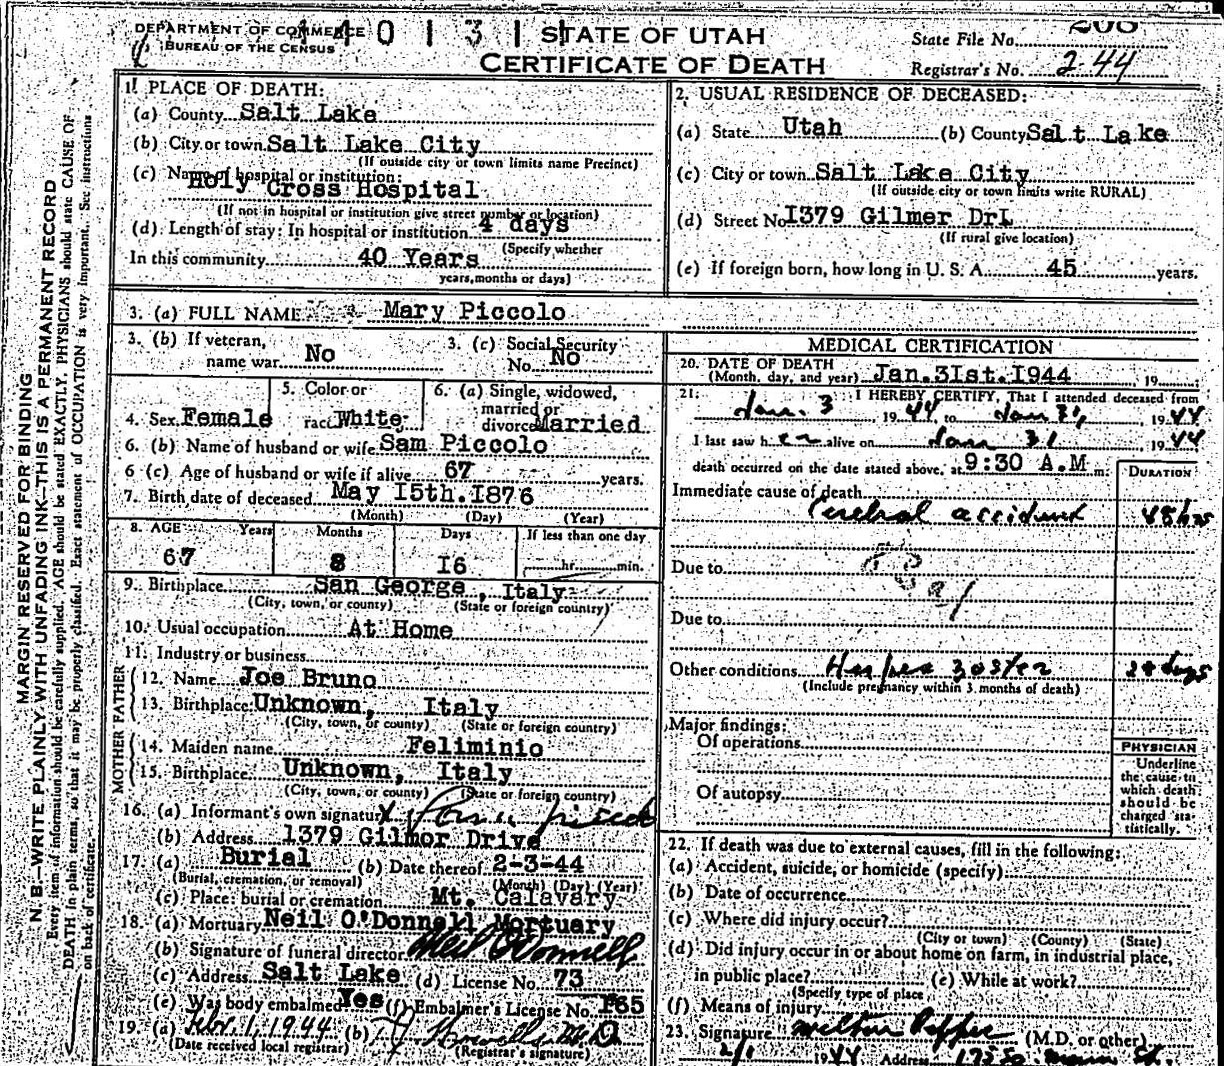 DEPARTMENT OF COMMERCE
BUREAU OF THE CENSUS
STATE OF UTAH
CERTIFICATE OF DEATH
State File No.
Registrar's No. 244
MARGIN RESERVED FOR BINDING
N. B.—WRITE PLAINLY WITH UNFADING INK—THIS IS A PERMANENT RECORD
Every item of information should be carefully supplied. AGE should be stated EXACTLY. PHYSICIANS should state CAUSE OF
DEATH in plain terms, so that it may be properly classified. Exact statement of OCCUPATION is very important. See instructions
on back of certificate.
1. PLACE OF DEATH:
(a) County Salt Lake
(b) City or town Salt Lake City
(If outside city or town limits name Precinct)
(c) Name of hospital or institution:
Holy Cross Hospital
(If not in hospital or institution give street number or location)
(d) Length of stay: In hospital or institution 4 days
(Specify whether
In this community 40 Years
years, months or days)
2. USUAL RESIDENCE OF DECEASED:
(a) State Utah (b) County Salt Lake
(c) City or town Salt Lake City
(If outside city or town limits write RURAL)
(d) Street No I379 Gilmer Dr
(If rural give location)
(e) If foreign born, how long in U. S. A. 45 years.
3. (a) FULL NAME Mary Piccolo
3. (b) If veteran, name war No
3. (c) Social Security No. No
4. Sex Female
5. Color or race White
6. (a) Single, widowed, married or divorced Married
6. (b) Name of husband or wife Sam Piccolo
6 (c) Age of husband or wife if alive 67 years.
7. Birth date of deceased May I5th. I876
(Month) (Day) (Year)
8. AGE Years Months Days If less than one day
67 8 I6 hr. min.
9. Birthplace San George, Italy
(City, town, or county) (State or foreign country)
10. Usual occupation At Home
11. Industry or business
FATHER
12. Name Joe Bruno
13. Birthplace Unknown, Italy
(City, town, or county) (State or foreign country)
MOTHER
14. Maiden name Feliminio
15. Birthplace Unknown, Italy
(City, town, or county) (State or foreign country)
16. (a) Informant's own signature X
(b) Address 1379 Gilmor Drive
17. (a) Burial (b) Date thereof 2-3-44
(Burial, cremation, or removal) (Month) (Day) (Year)
(c) Place: burial or cremation Mt. Calavary
18. (a) Mortuary Neil O'Donnell Mortuary
(b) Signature of funeral director Neil O'Donnell
(c) Address Salt Lake (d) License No. 73
(e) Was body embalmed Yes (f) Embalmer's License No.
19. (a) 1, 1944 (b)
(Date received local registrar) (Registrar's signature)
MEDICAL CERTIFICATION
20. DATE OF DEATH
(Month, day, and year) Jan. 3Ist. I944, 19
21. I HEREBY CERTIFY, That I attended deceased from
Jan. 3 1944 to Jan 31, 1944
I last saw her alive on Jan 31 1944
death occurred on the date stated above, at 9:30 A.M m.
DURATION
Immediate cause of death
Cerebral accident 48 hrs
Due to
Due to
Other conditions Herpes zoster 28 days
(Include pregnancy within 3 months of death)
Major findings:
Of operations
Of autopsy
PHYSICIAN
Underline
the cause to
which death
should be
charged sta-
tistically.
22. If death was due to external causes, fill in the following:
(a) Accident, suicide, or homicide (specify)
(b) Date of occurrence
(c) Where did injury occur?
(City or town) (County) (State)
(d) Did injury occur in or about home on farm, in industrial place,
in public place? (e) While at work?
(Specify type of place
(f) Means of injury
23. Signature Milton Pepper (M.D. or other)
2/1 1944 Address